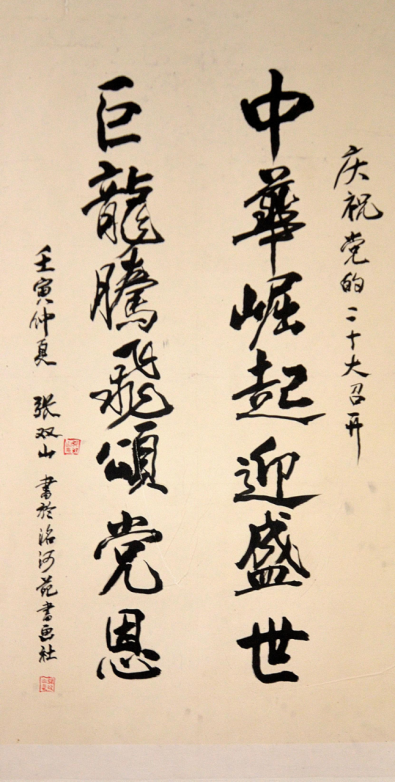 庆祝党的二十大召开
中華崛起迎盛世
巨龍騰飛頌党恩
壬寅仲夏 张双山 書於洺河苑書画社